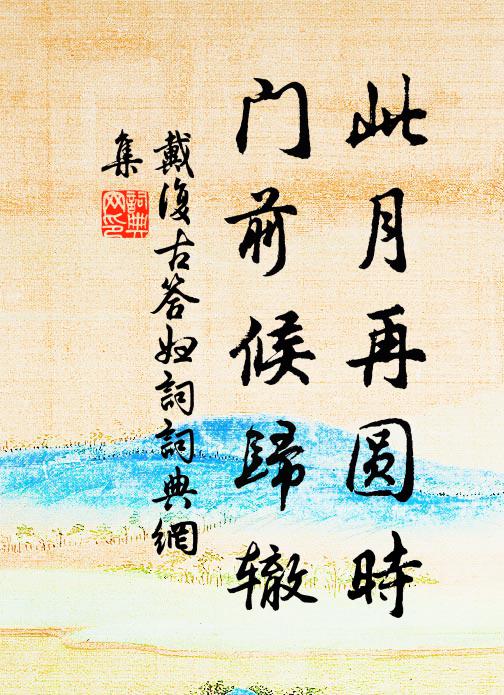 此月再圆時
门前候歸辙
戴復古答妇詞詞典網
集
詞典网印